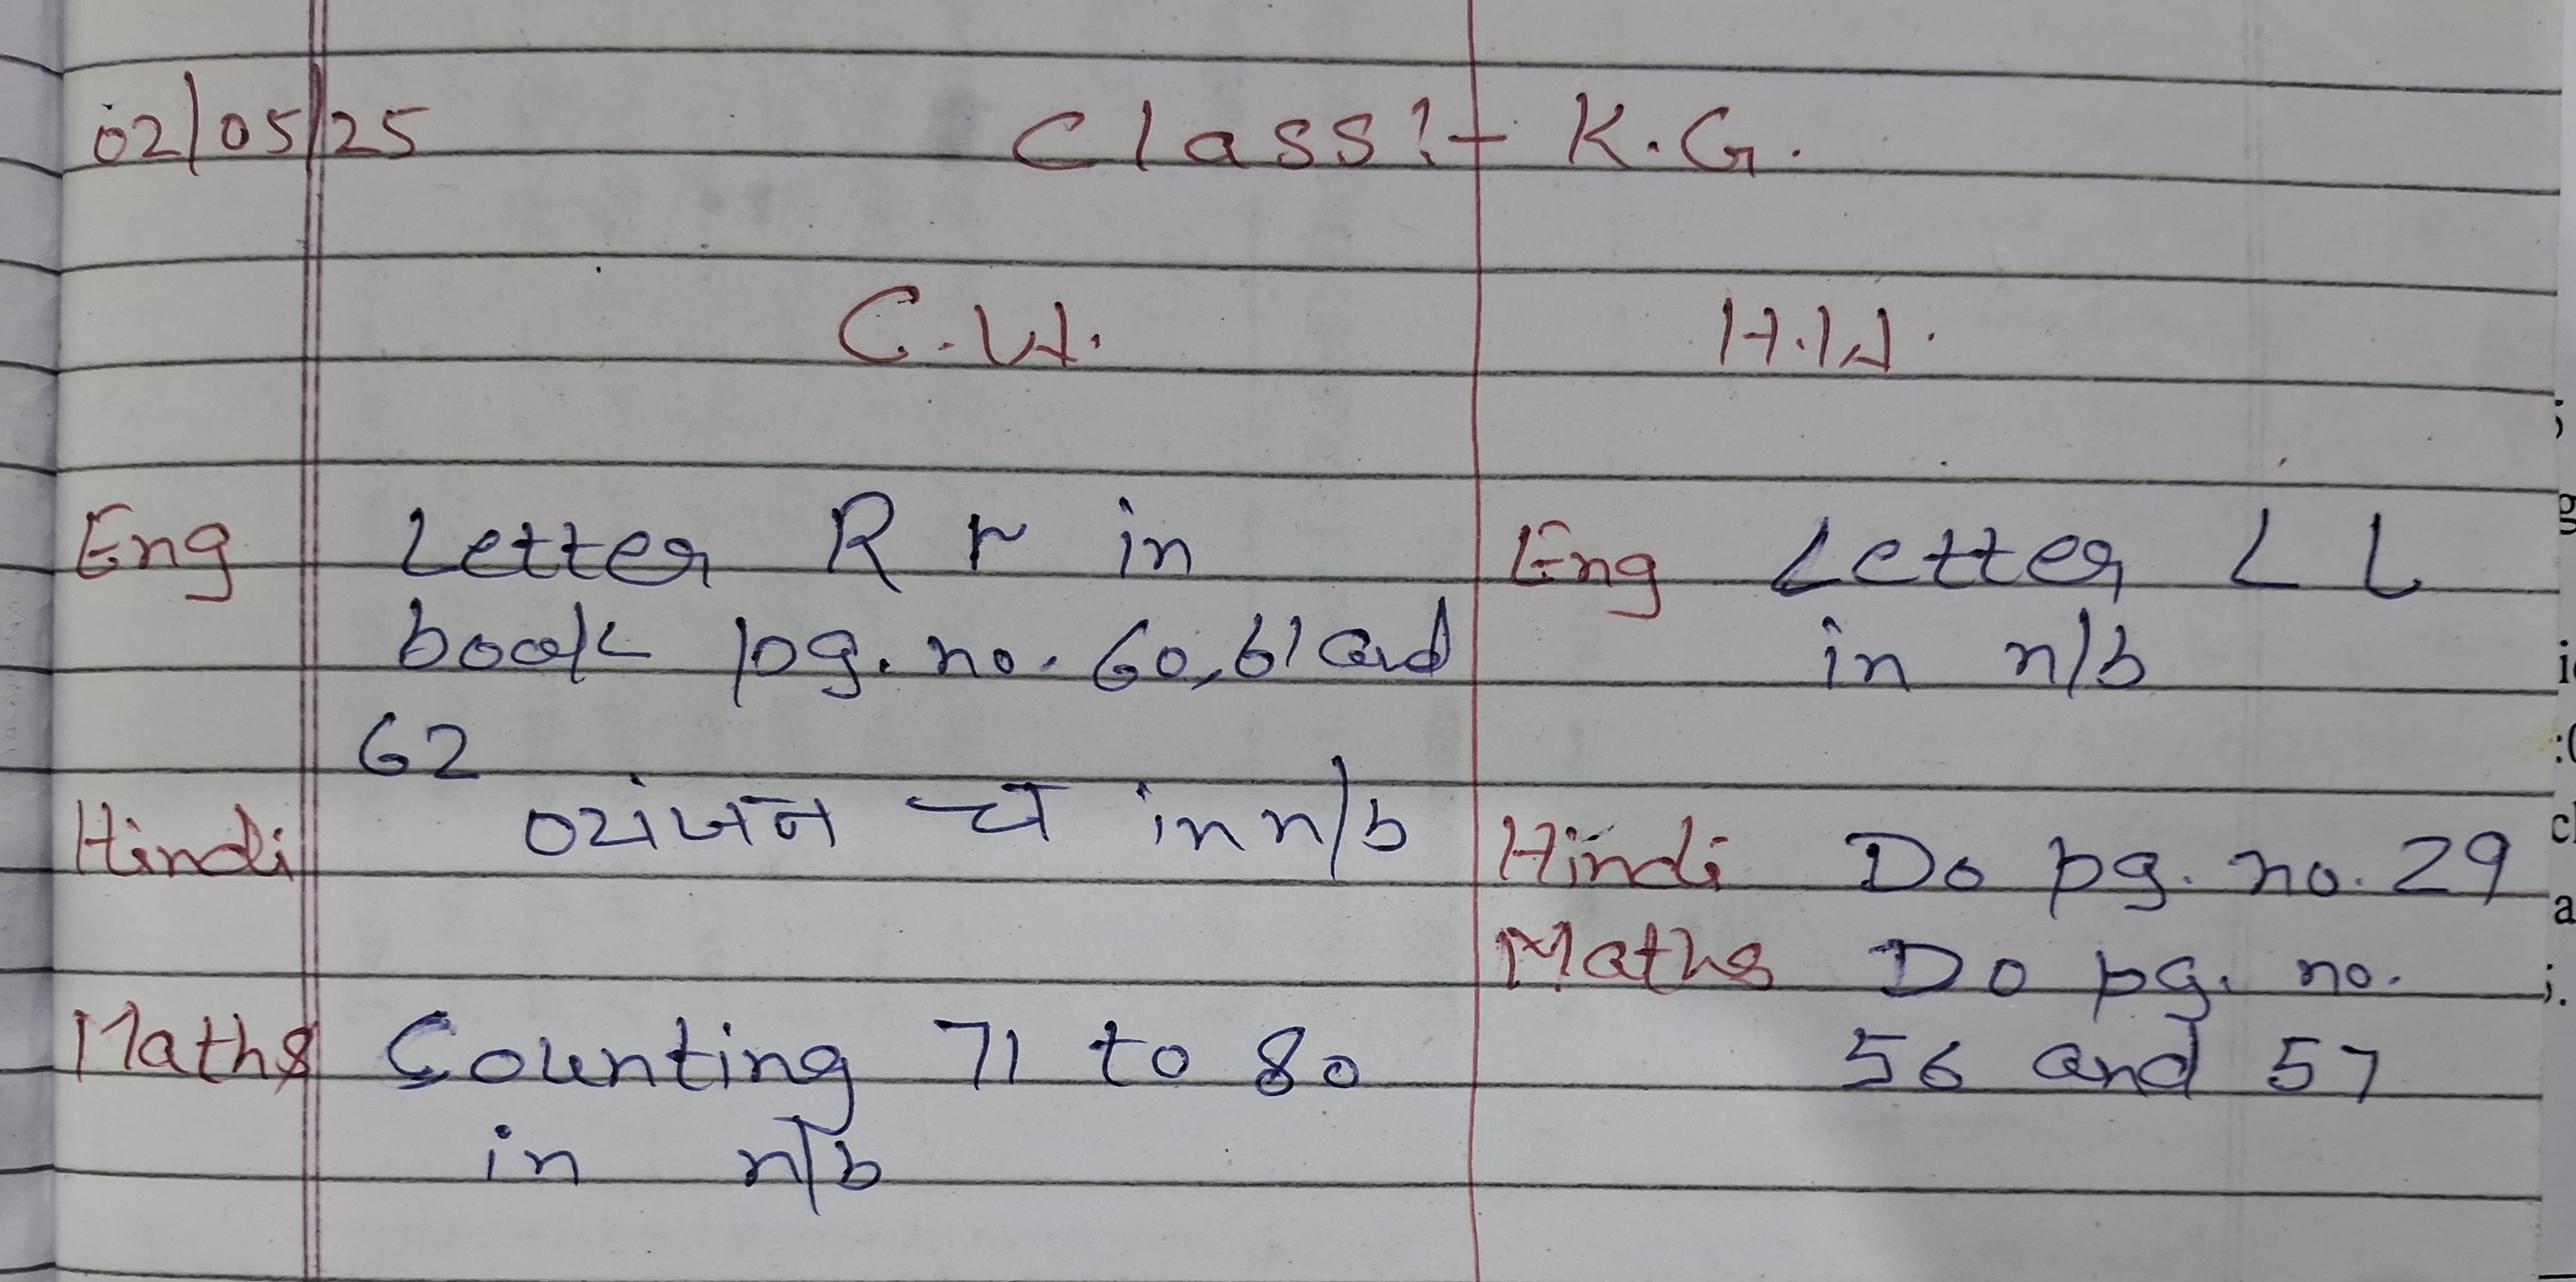 02/05/25 Class:- K.G.
C.W. H.W.
Eng Letter R r in
book pg. no. 60,61 and
62
Hindi व्यंजन च in n/b
Maths Counting 71 to 80
in n/b
Eng Letter L l
in n/b
Hindi Do pg. no. 29
Maths Do pg. no.
56 and 57